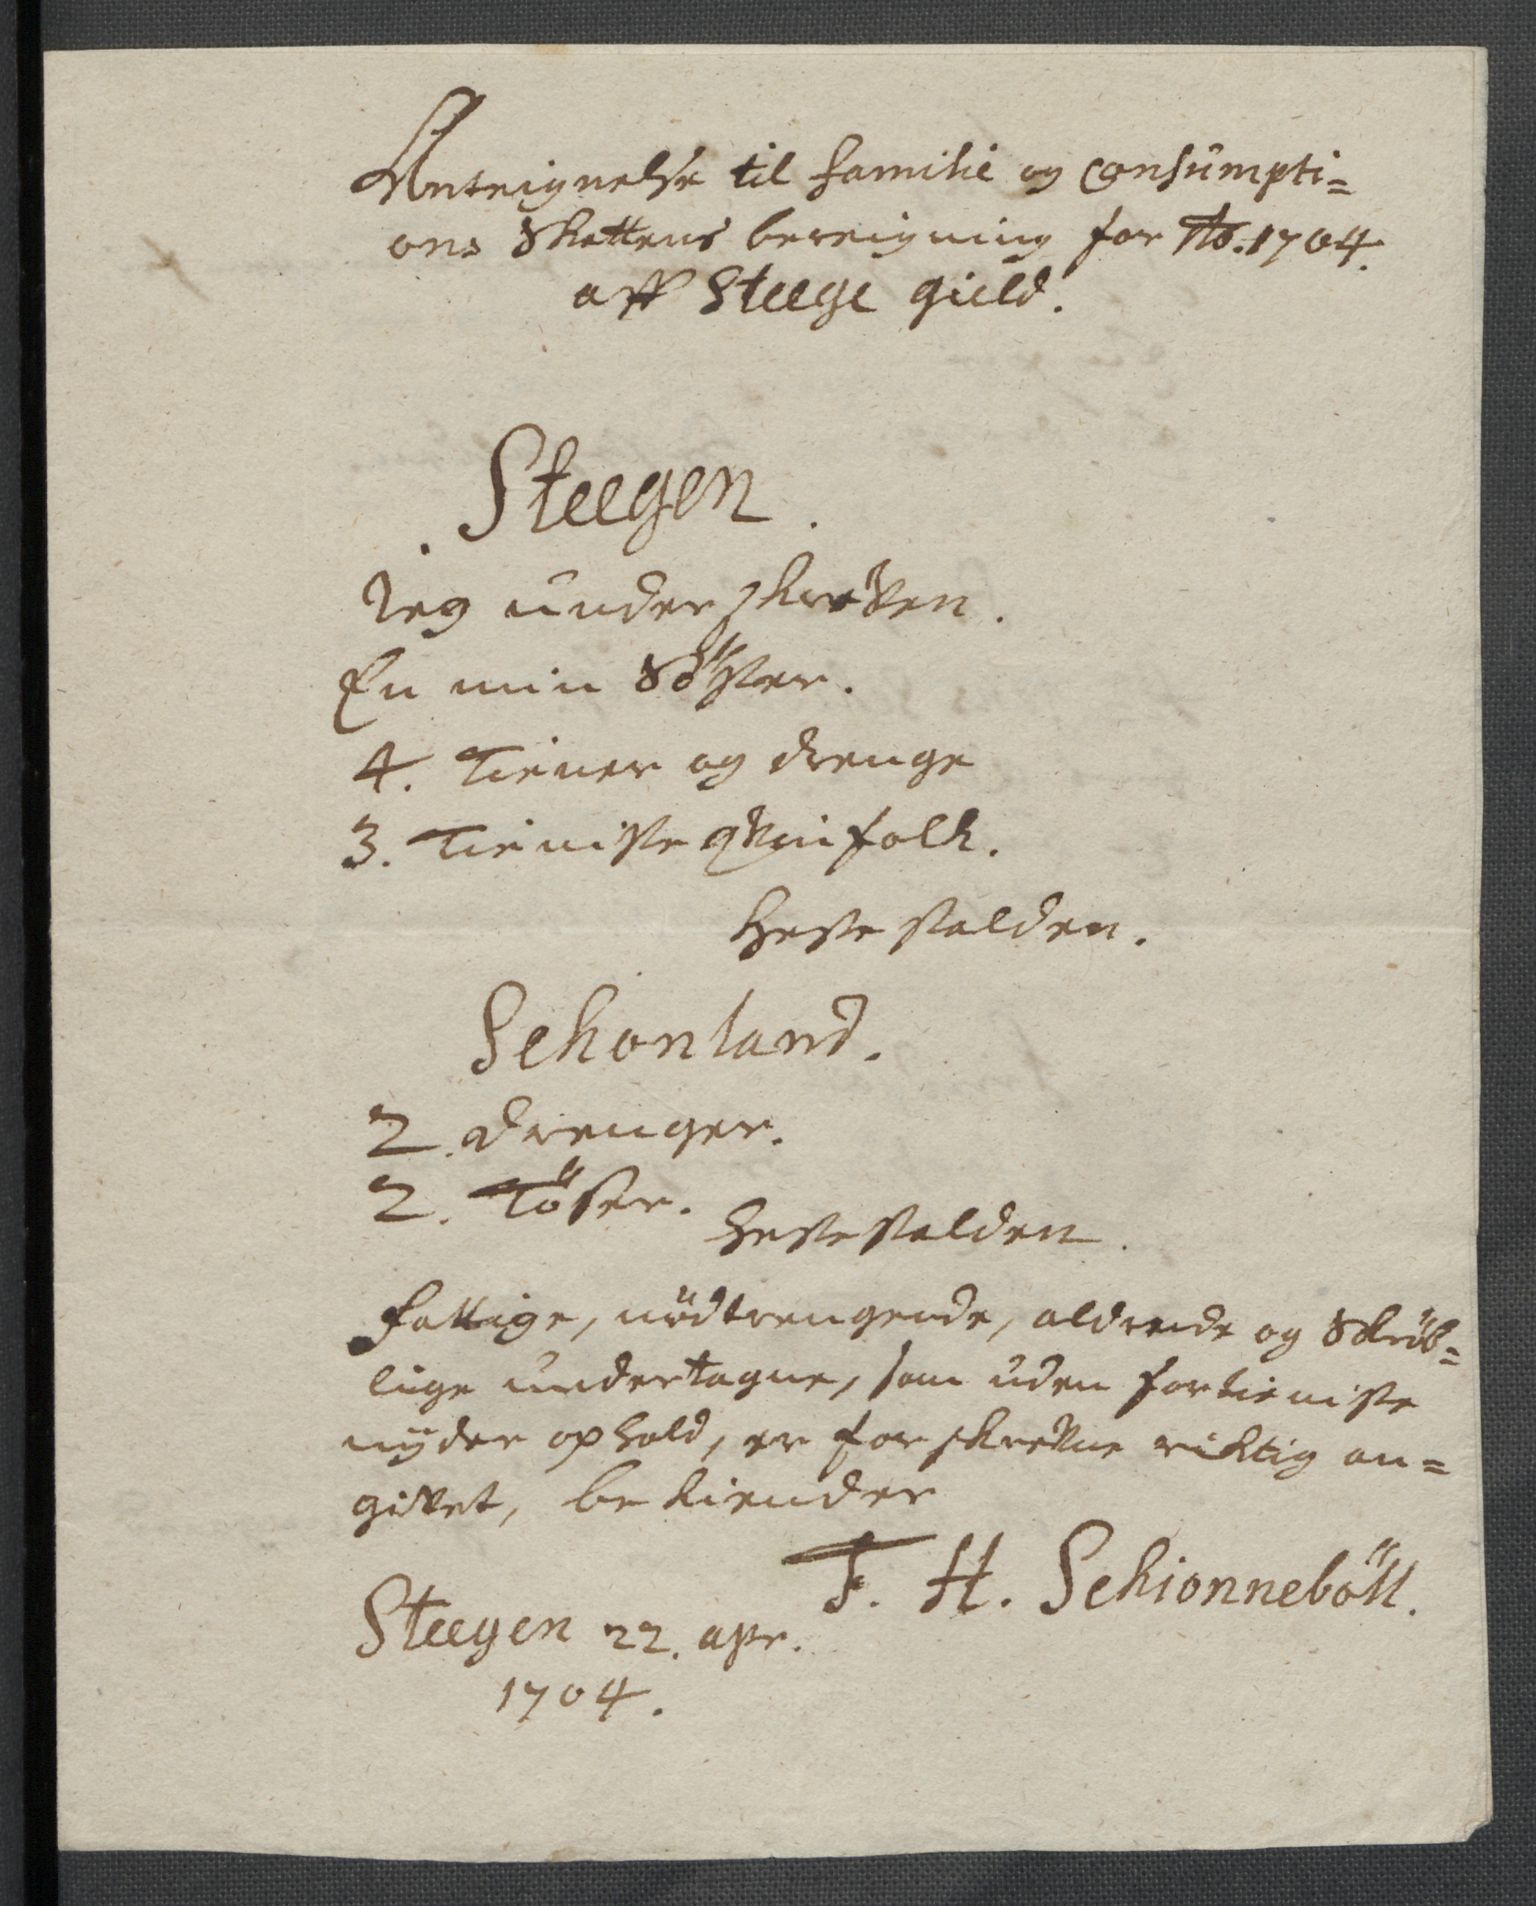 Anteignelse til familie og Consumpti=
ons Skattens bereigning for Ao. 1704.
aff Steege gield.
Steegen.
Jeg underskreven.
En min Söster.
4. Tiener og drenge
3. Tieniste qvinfolk.
Heste stalden.
Schonland.
2. drenger.
2. Töser.
Hestestalden.
Fattige, nödtrengende, aldrende og Skröb=
lige undertagne, som uden fortieniste
nyder ophold, er forskrevne richtig an=
givet, bekiender
F. H. Schionneböll.
Steegen 22. apr.
1704.